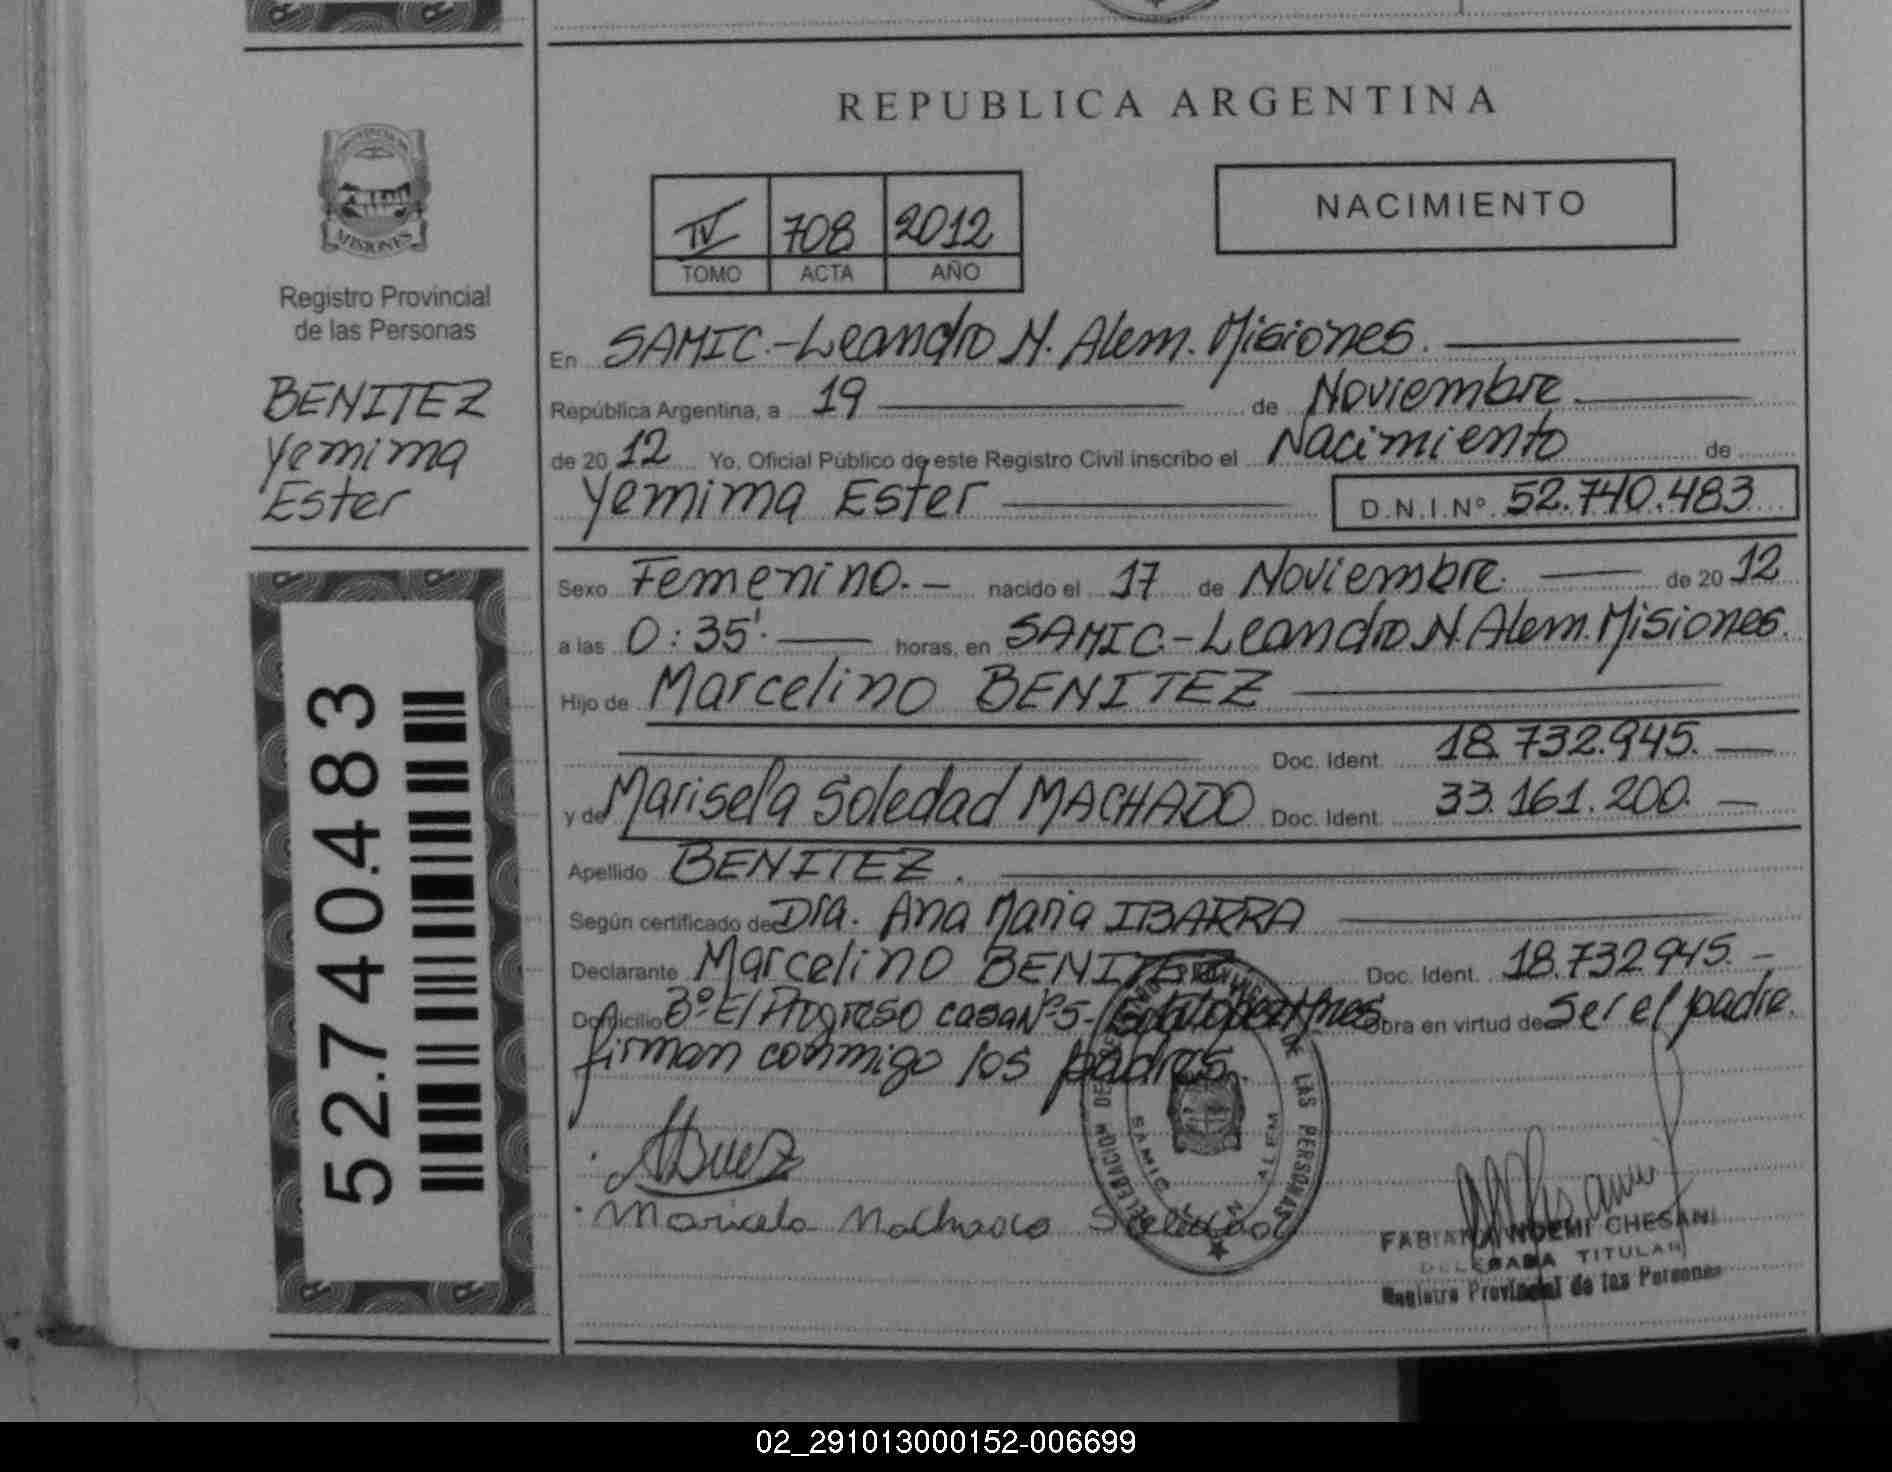 REPUBLICA ARGENTINA
MISIONES
Registro Provincial
de las Personas
BENITEZ
Yemima
Ester
52.740.483
IV 708 2012
TOMO ACTA AÑO
NACIMIENTO
En SAMIC.-Leandro N. Alem. Misiones.
República Argentina, a 19 de Noviembre.
de 2012 Yo, Oficial Público de este Registro Civil inscribo el Nacimiento de
Yemima Ester D.N.I.Nº 52.740.483
Sexo Femenino.- nacido el 17 de Noviembre. de 2012
a las 0:35'. horas, en SAMIC.-Leandro N. Alem. Misiones.
Hijo de Marcelino BENITEZ
Doc. Ident. 18.732.945.
y de Marisela Soledad MACHADO Doc. Ident. 33.161.200.
Apellido BENITEZ.
Según certificado de Dra. Ana Maria IBARRA
Declarante Marcelino BENITEZ Doc. Ident. 18.732.945.-
Domicilio Bº El Progreso casa Nº5- Obra en virtud de Ser el padre.
firman conmigo los padres.
Maricela Machado Soledad
DELEGACION DE LAS PERSONAS
SAMIC L. N. ALEM
FABIANA NOEMI CHESANI
DELEGADA TITULAR
Registro Provincial de las Personas
02_291013000152-006699